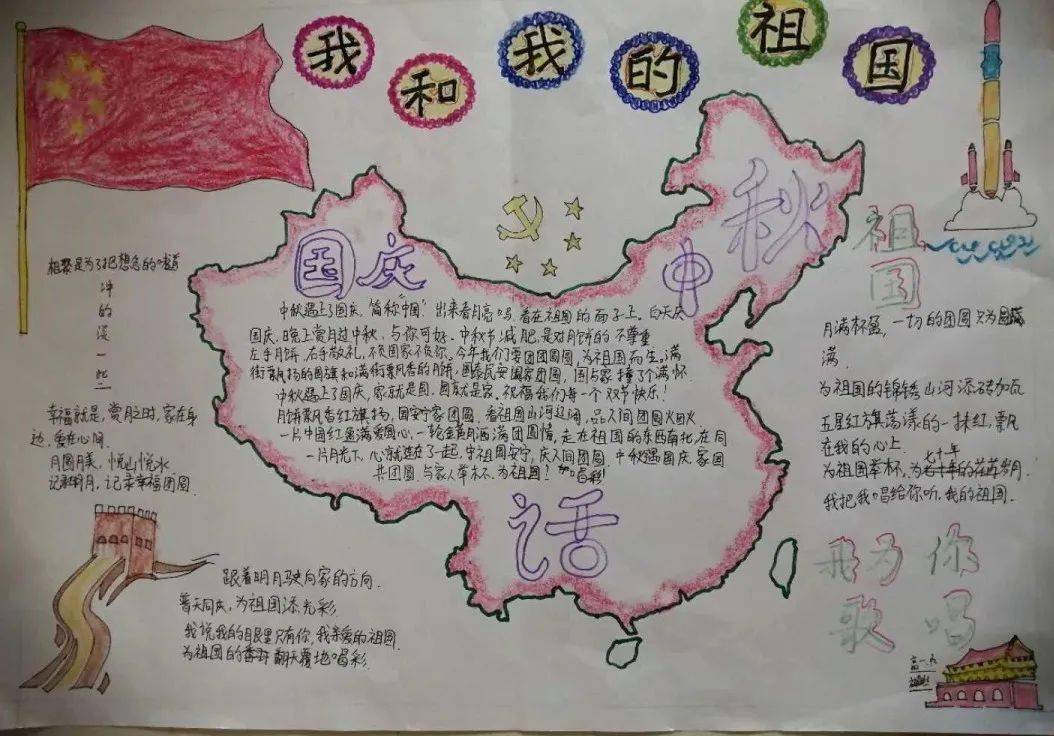 我和我的祖国
国庆
中秋
中秋遇上了国庆，简称“中国”！出来看月亮吗，看在祖国的面子上。白天庆
国庆，晚上赏月过中秋，与你可好。中秋节减肥，是对月饼的不尊重
左手月饼，右手敬礼，不负国家不负你。今年我们要团团圆圆，为祖国而生。满
街飘扬的国旗和满街飘香的月饼，国泰民安国家团圆，国与家撞了个满怀
中秋遇上了国庆，家就是国，国就是家，祝福我们每一个双节快乐！
月饼飘香红旗扬，国安宁家团圆，看祖国山河辽阔，品人间团圆火
一片中国红盈满爱国心，一轮金黄月洒满团圆情，走在祖国的东西南北，在同
一片月光下，心就连在了一起，中祖国安宁，庆人间团圆，中秋遇国庆，家国
共团圆，与家人举杯，为祖国！喝彩
话
相聚是为了把想念的
冲
的
淡
一
些
幸福就是，赏月之时，家在身
边，爱在心间
月圆月美，悦山悦水
记明月，记录幸福团圆
跟着明月驶向家的方向
普天同庆，为祖国添光彩
我说我的眼里只有你，我亲爱的祖国
为祖国的翻天覆地喝彩
祖国
月满杯盈，一切的团圆只为
满
为祖国的锦绣山河添砖加瓦
五星红旗荡漾的一抹红，飘
在我的心上
为祖国举杯，为七十年的花莲岁月
我把我唱给你听，我的祖国
我为你
歌唱